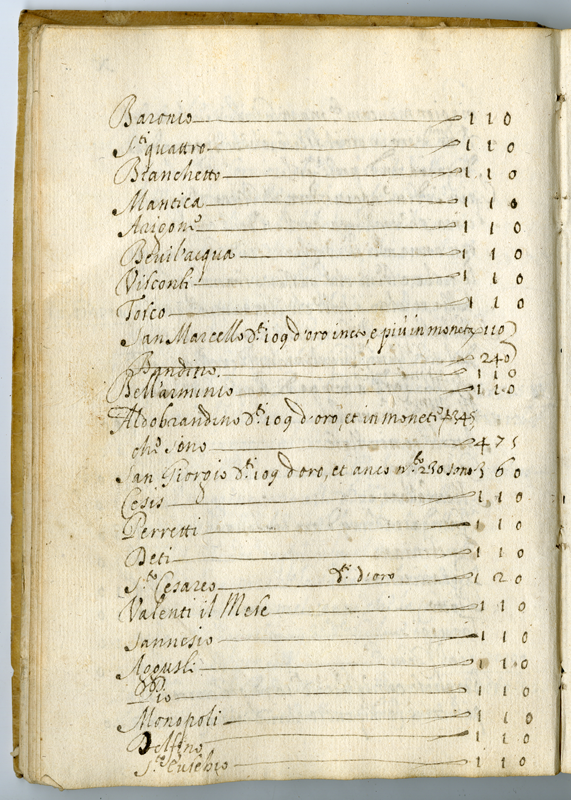 Baronio 110
S.ti quattro 110
Bianchetto 110
Mantica 110
Arigone 110
Bevilacqua 110
Visconti 110
Tosco 110
San Marcello d.ti 109 d'oro in cto, e più in moneta 110
Bandino 240
Bell'arminio 110
Aldobrandino d.ti 109 d'oro, et in monet.e
che sono 475
San Giorgio d.ti 109 d'oro, et anco 250 sono 360
Cesis 110
Perretti 110
Deti 110
S.to Cesareo d.ti d'oro 120
Valenti il Mese 110
Sannesio 110
110
Pio 110
Monopoli 110
Delfino 110
S.to Eusebio 110